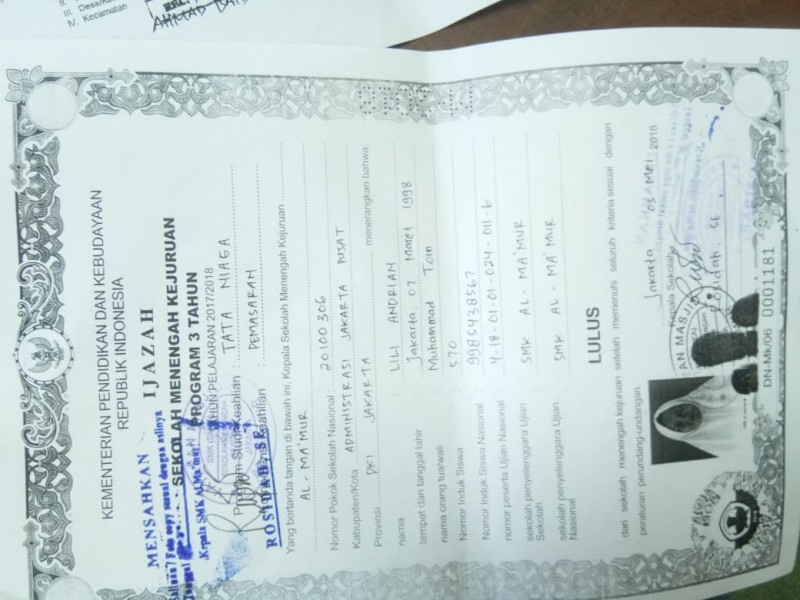 III. Desa/Kel
IV. Kecamatan
KEMENTERIAN PENDIDIKAN DAN KEBUDAYAAN
REPUBLIK INDONESIA
IJAZAH
SEKOLAH MENENGAH KEJURUAN
PROGRAM 3 TAHUN
TAHUN PELAJARAN 2017/2018
MENSAHKAN
Foto copy sesuai dengan aslinya
Kepala SMK AL Ma'mur
Program Studi Keahlian : TATA NIAGA
Keahlian : PEMASARAN
Yang bertanda tangan di bawah ini, Kepala Sekolah Menengah Kejuruan
AL - MA'MUR
Nomor Pokok Sekolah Nasional : 20100306
Kabupaten/Kota ADMINISTRASI JAKARTA PUSAT
Provinsi DKI JAKARTA menerangkan bahwa
nama : LILI ANDRIAN
tempat dan tanggal lahir : Jakarta, 07 Maret 1998
nama orang tua/wali : Muhammad Toin
Nomor Induk Siswa : 570
Nomor Induk Siswa Nasional : 9985438567
nomor peserta Ujian Nasional : 4-18-01-01-024-011-6
sekolah penyelenggara Ujian Sekolah : SMK AL - MA'MUR
sekolah penyelenggara Ujian Nasional : SMK AL - MA'MUR
LULUS
dari sekolah menengah kejuruan setelah memenuhi seluruh kriteria sesuai dengan
peraturan perundang-undangan
Jakarta 03 Mei 2018
Kepala Sekolah
DN-MK/06 0001181